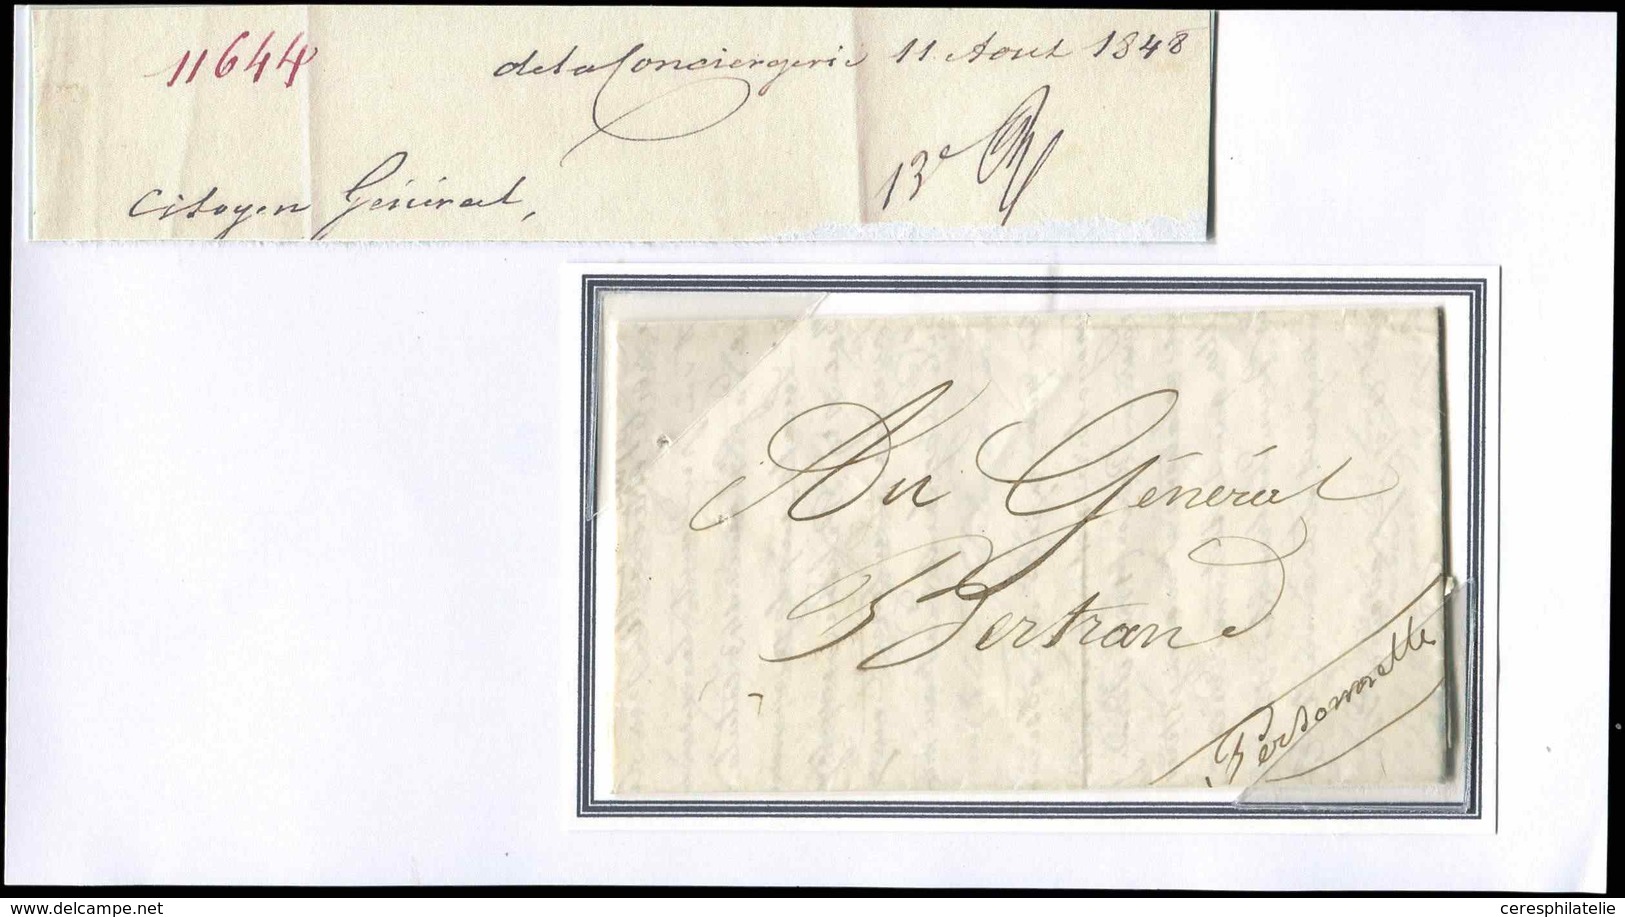 11644 de la Conciergerie 11 Aout 1848
13e
Citoyen Général,
Au Général
Bertrand
Personnelle
www.delcampe.net
ceresphilatelie